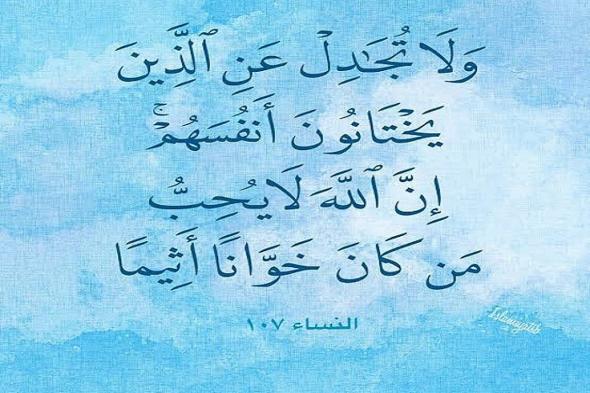 وَلَا تُجَٰدِلْ عَنِ ٱلَّذِينَ
يَخْتَانُونَ أَنفُسَهُمْ ۚ
إِنَّ ٱللَّهَ لَا يُحِبُّ
مَن كَانَ خَوَّانًا أَثِيمًا
النساء ١٠٧